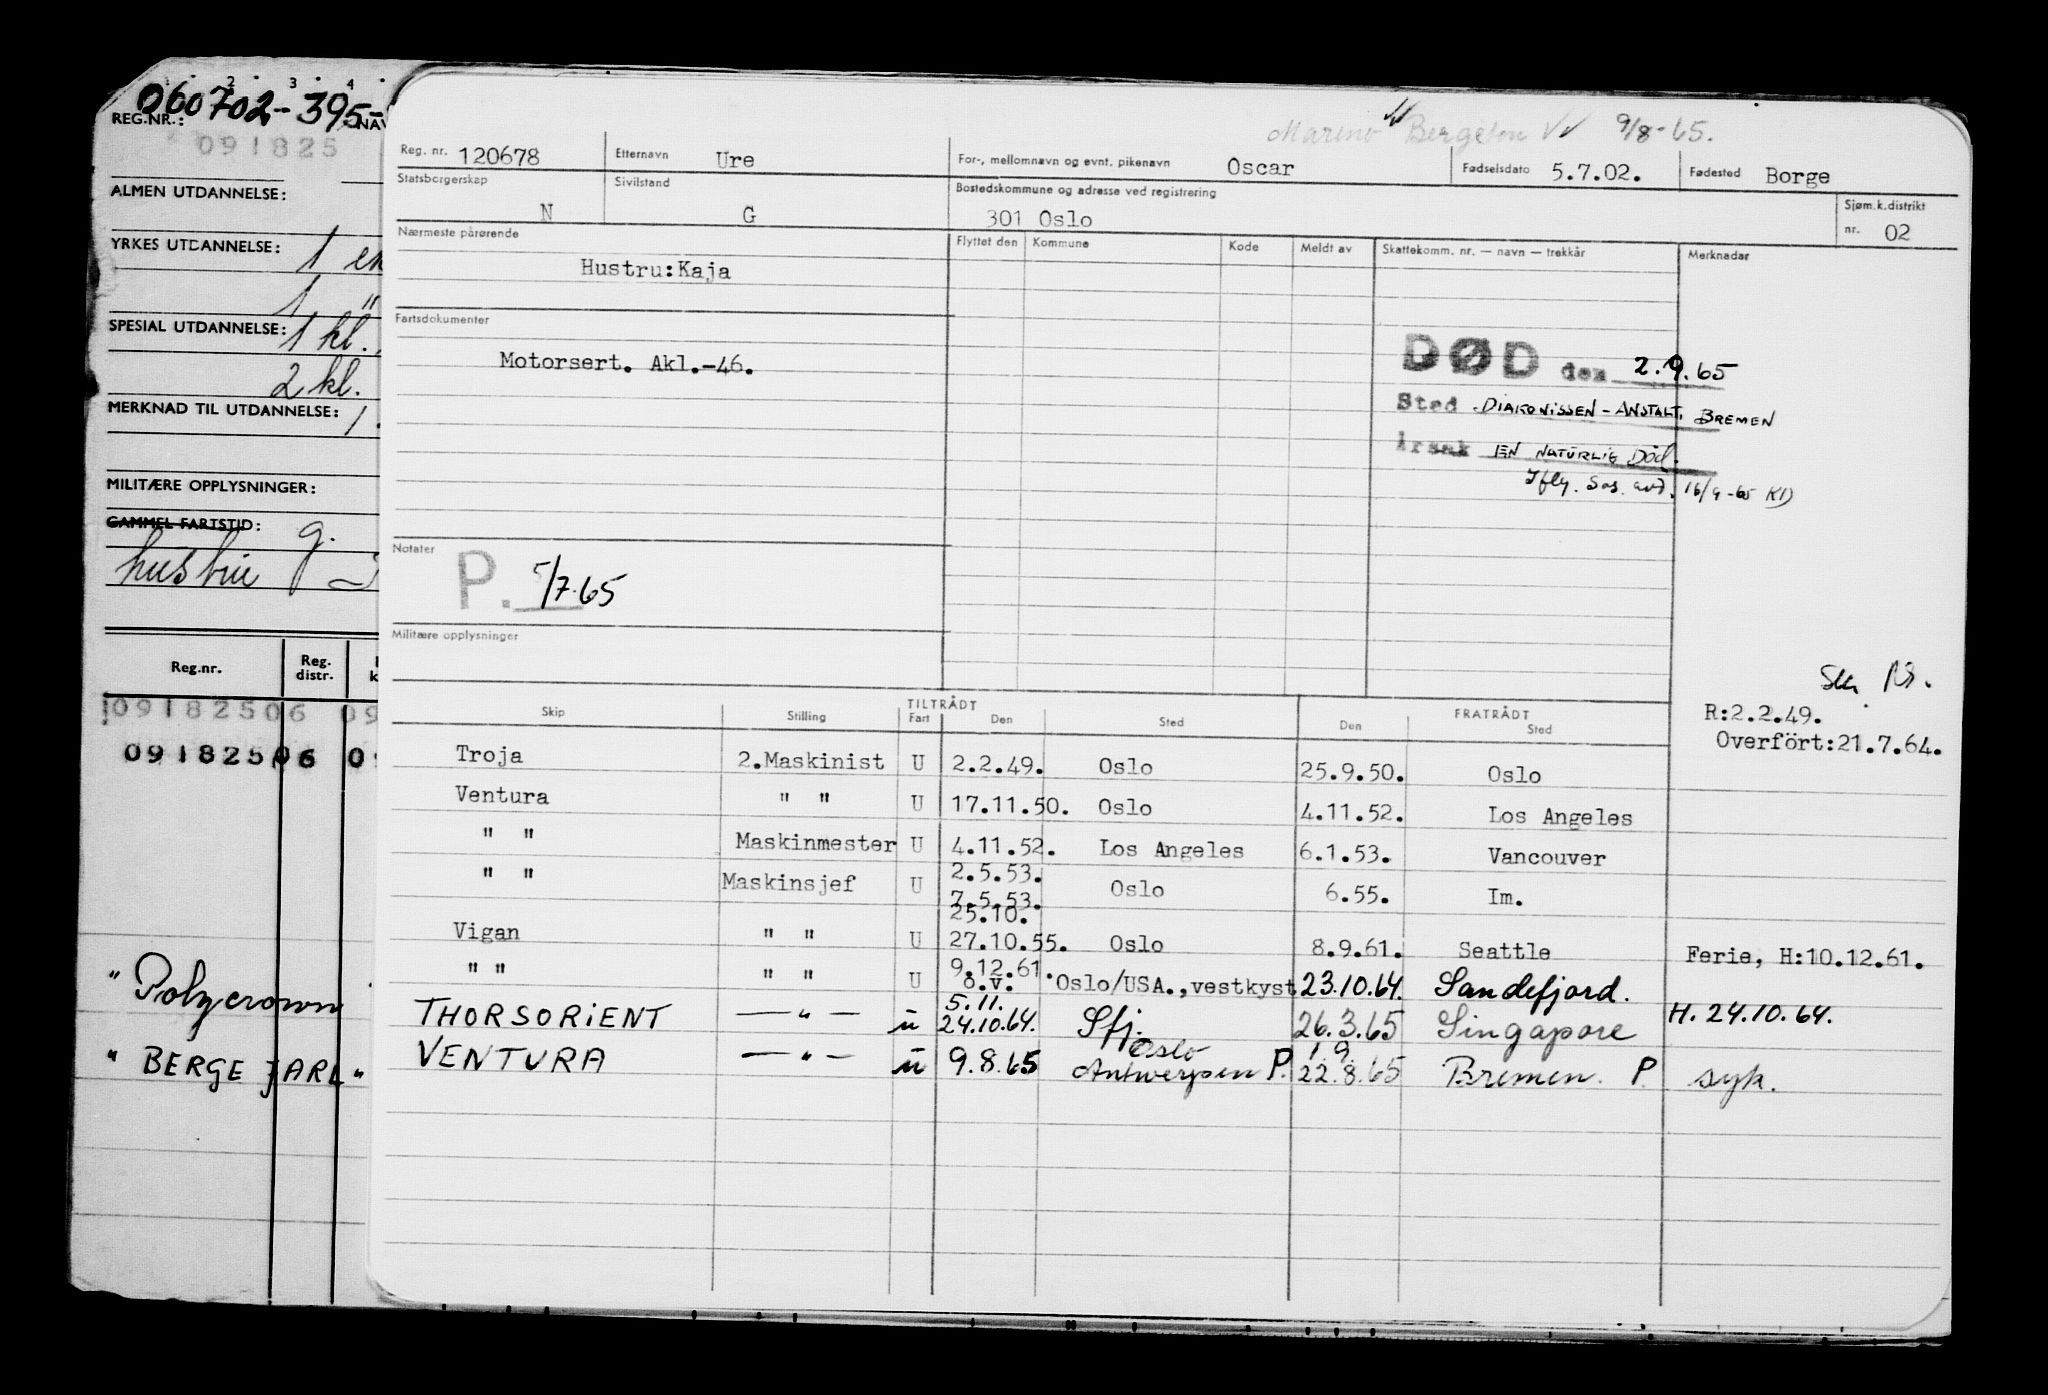 060702-395-
REG.NR.:
091825
ALMEN UTDANNELSE:
YRKES UTDANNELSE: 1 en
1 "
SPESIAL UTDANNELSE: 1 kl.
2 kl.
MERKNAD TIL UTDANNELSE: 1
MILITÆRE OPPLYSNINGER:
GAMMEL FARTSTID: g.
hustru
Reg.nr. Reg. distr.
09182506 09
09182506 0
"Polycrown
"BERGE JARL"
9/8-65.
Reg. nr. 120678 Etternavn Ure For-, mellomnavn og evnt. pikenavn Oscar Fødselsdato 5.7.02. Fødested Borge
Statsborgerskap N Sivilstand G Bostedskommune og adresse ved registrering 301 Oslo Sjøm.k.distrikt nr. 02
Nærmeste pårørende Flyttet den Kommune Kode Meldt av Skattekomm. nr. — navn — trekkår Merknader
Hustru:Kaja
Fartsdokumenter
Motorsert. Akl.-46.
DØD den 2.9.65
Sted DIAKONISSEN-ANSTALT, BREMEN
Årsak EN NATURLIG DØD.
Iflg. Sos. avd. 16/9-65 KD
Notater
P. 5/7.65
Militære opplysninger
R:2.2.49.
Overfört:21.7.64.
TILTRÅDT FRATRÅDT
Skip Stilling Fart Den Sted Den Sted
Troja 2.Maskinist U 2.2.49. Oslo 25.9.50. Oslo
Ventura " " U 17.11.50. Oslo 4.11.52. Los Angeles
" " Maskinmester U 4.11.52. Los Angeles 6.1.53. Vancouver
" " Maskinsjef U 2.5.53. 7.5.53. Oslo 6.55. Im.
Vigan " " U 25.10. 27.10.55. Oslo 8.9.61. Seattle Ferie, H:10.12.61.
" " " " U 9.12.61. o.v. Oslo/USA.,vestkyst 23.10.64. Sandefjord.
THORSORIENT — " — u 5.11. 24.10.64. Sfj. 26.3.65 Singapore H. 24.10.64.
VENTURA — " — u 9.8.65 Oslo Antwerpen P. 1.9. 22.8.65 Bremen. P. syk.